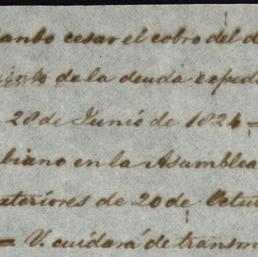 anto cesar el cobro del d
iento de la deuda espedi
28 de Junio de 1824
biano en la Asamblea
xteriores de 20 de Octu
= V. cuidará de transm